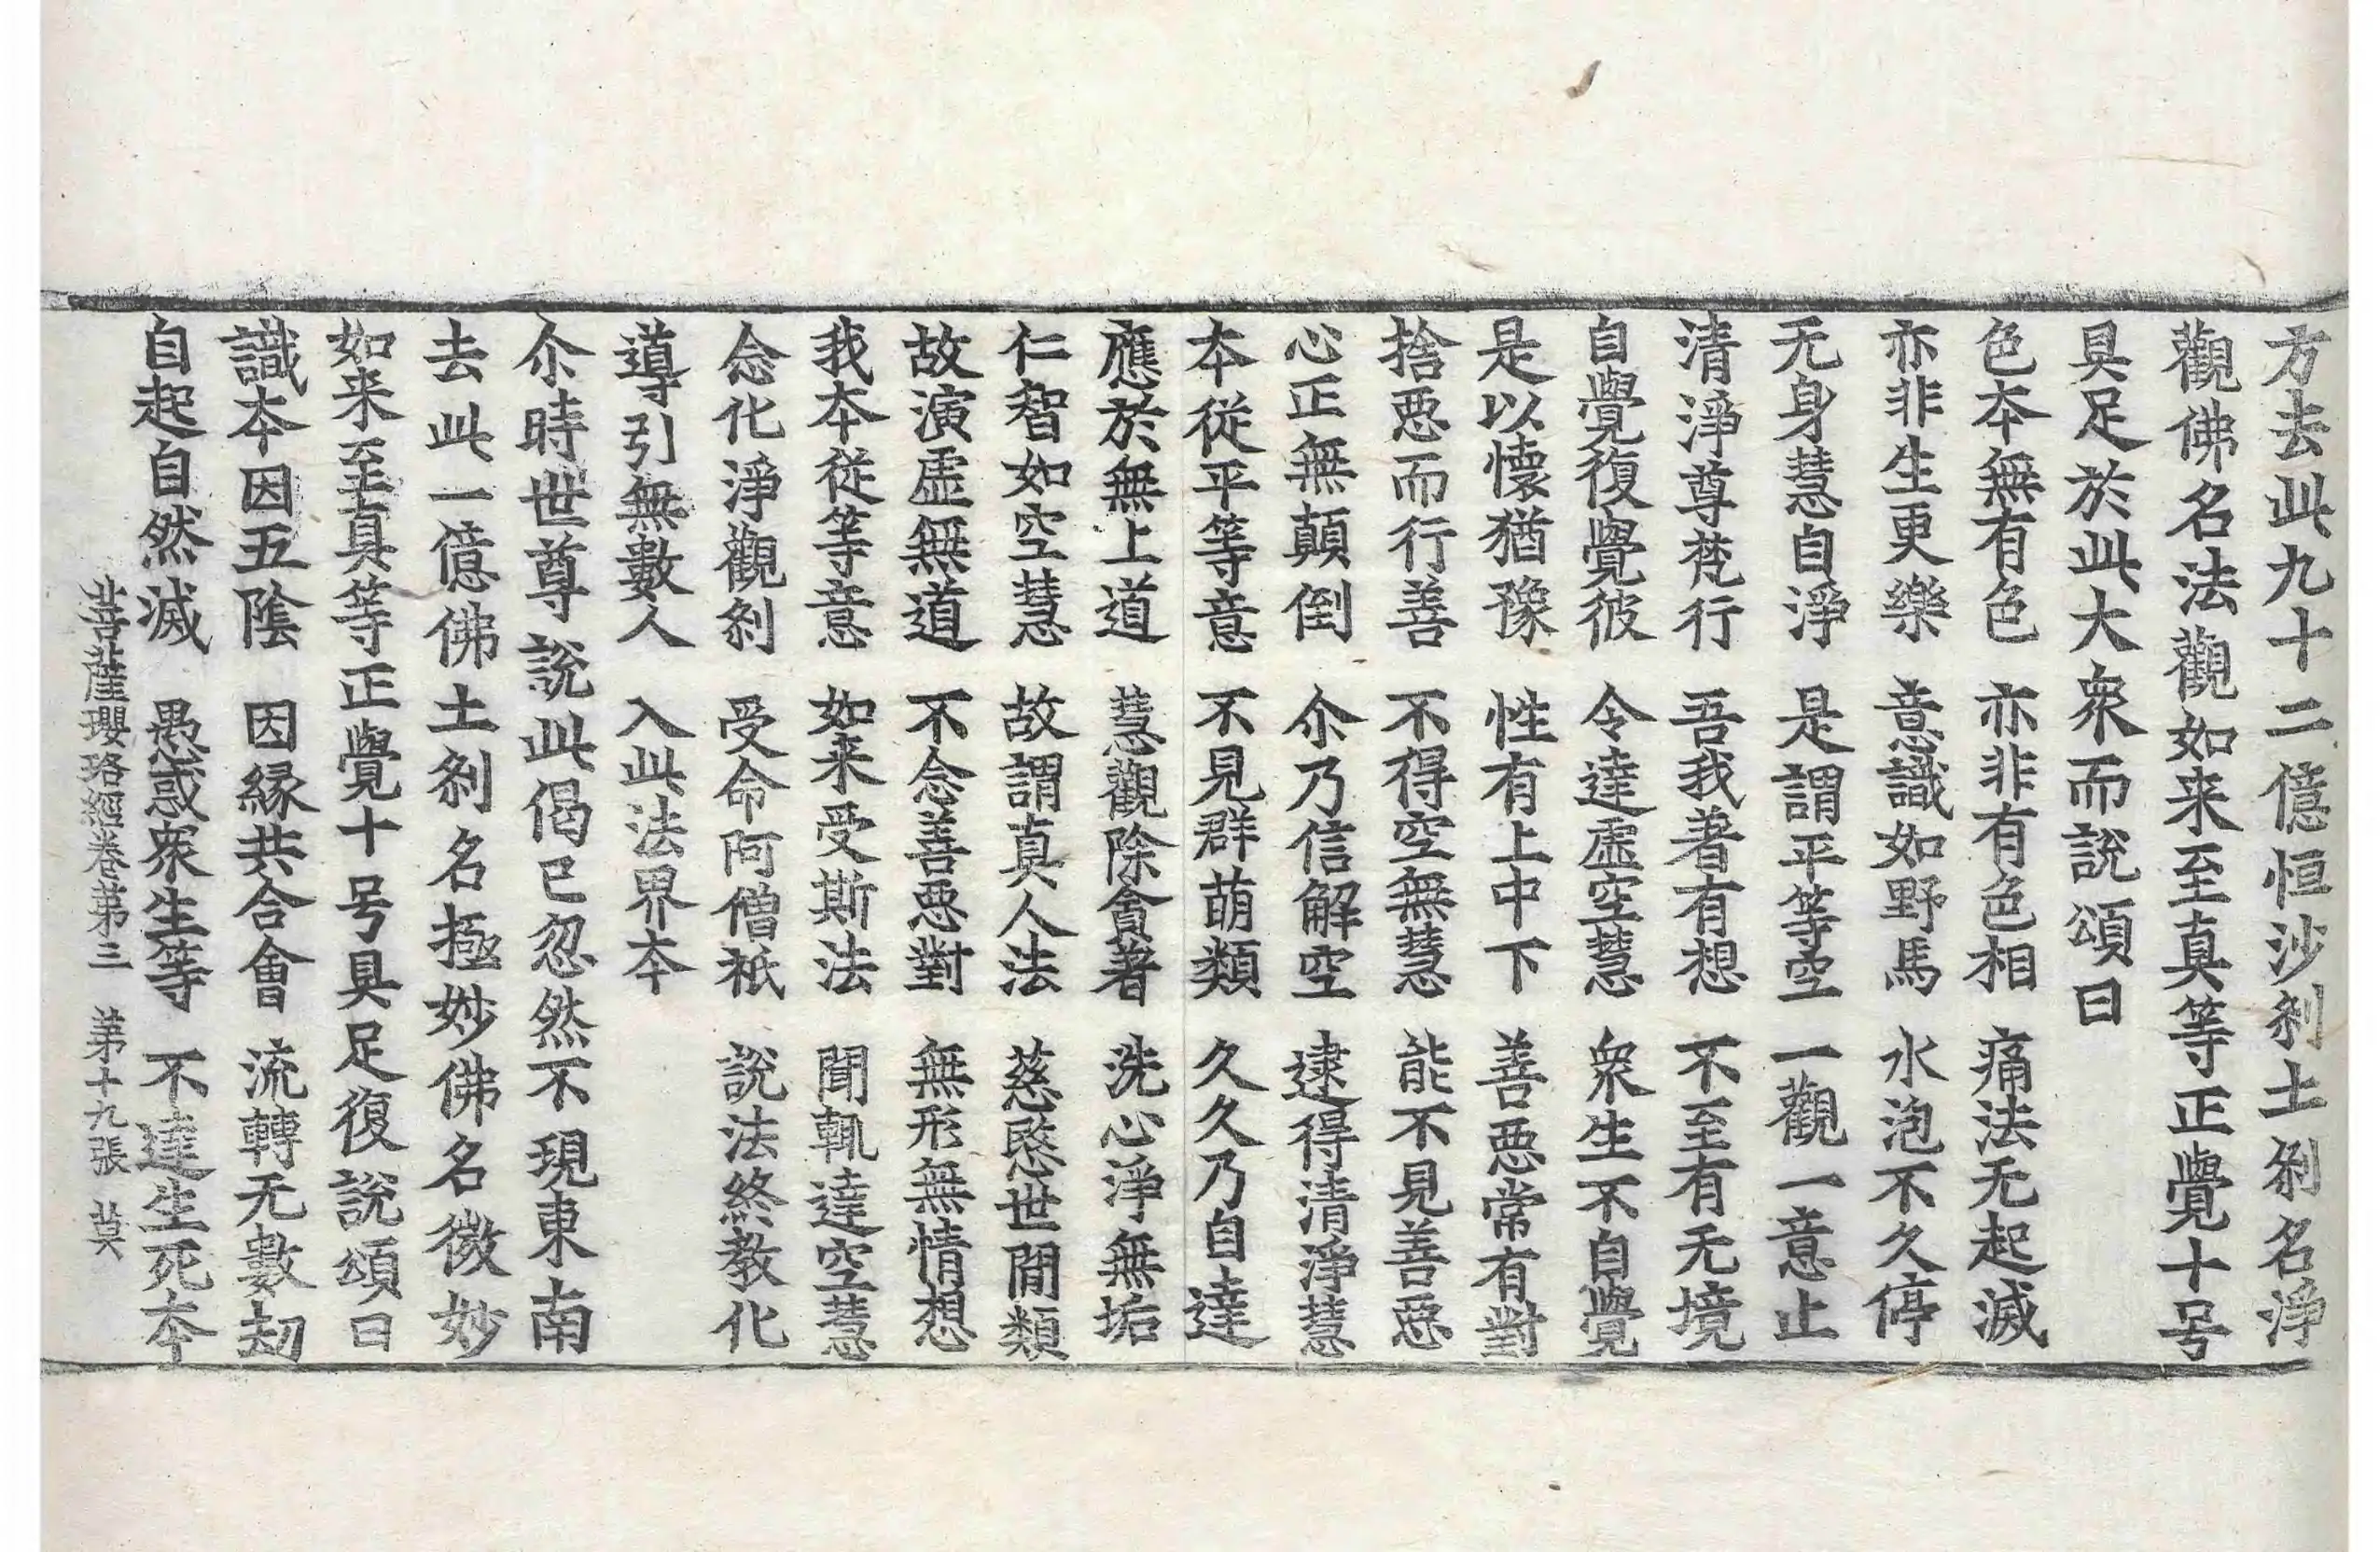 方去此九十二億恒沙剎土剎名淨
觀佛名法觀如来至真等正覺十号
具足於此大衆而說頌曰
色本無有色 亦非有色相 痛法无起滅
亦非生更樂 意識如野馬 水泡不久停
无身慧自淨 是謂平等空 一觀一意止
清淨尊梵行 吾我著有想 不至有无境
自覺復覺彼 令達虛空慧 衆生不自覺
是以懷猶豫 性有上中下 善惡常有對
捨惡而行善 不得空無慧 能不見善惡
心正無顛倒 尒乃信解空 逮得清淨慧
本從平等意 不見群萌類 久久乃自達
應於無上道 慧觀除貪著 洗心淨無垢
仁智如空慧 故謂真人法 慈愍世間類
故演虛無道 不念善惡對 無形無情想
我本從等意 如来受斯法 聞軌達空慧
念化淨觀剎 受命阿僧祇 說法終教化
導引無數人 入此法界本
尒時世尊說此偈已忽然不現東南
去此一億佛土剎名極妙佛名微妙
如来至真等正覺十号具足復說頌曰
識本因五陰 因緣共合會 流轉无數劫
自起自然滅 愚惑衆生等 不達生死本
菩薩瓔珞經卷第三 第十九張 莫